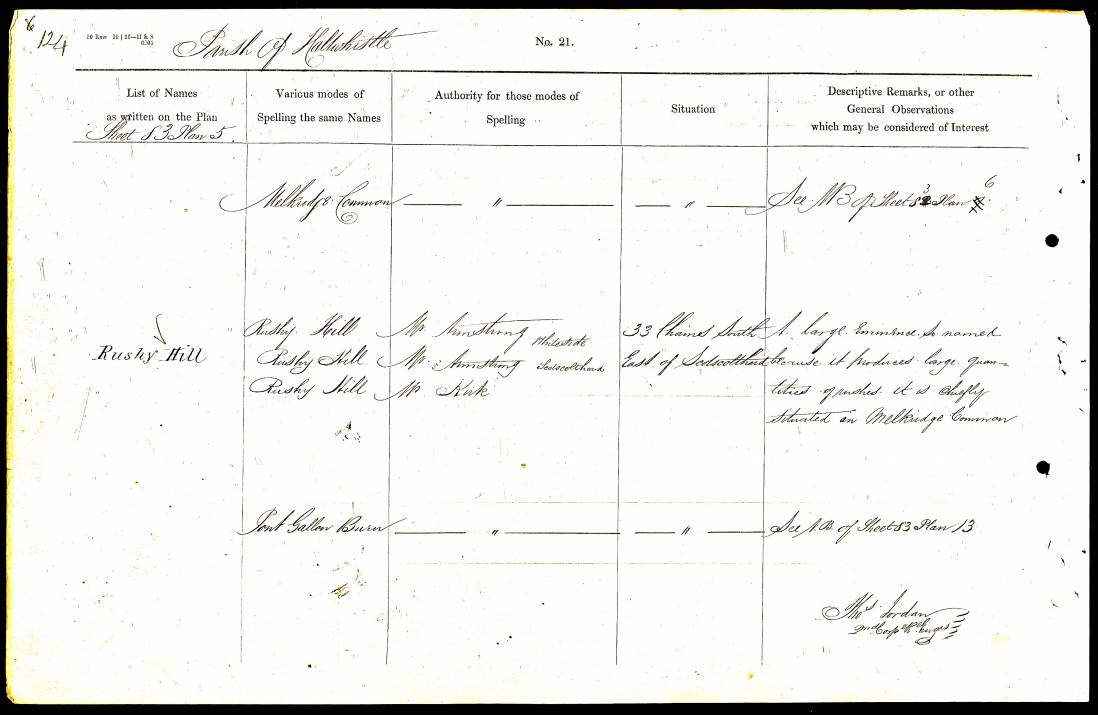 6
124
Parish of Haltwhistle
No. 21.
List of Names
as written on the Plan
Sheet 83 Plan 5.
Various modes of
Spelling the same Names
Authority for those modes of
Spelling
Situation
Descriptive Remarks, or other
General Observations
which may be considered of Interest
Melkridge Common — " — — " — See NB of Sheet 83 Plan 6
Rushy Hill
Rushy Hill Mr. Armstrong Whiteside 33 Chains South A large Eminence so named
Rushy Hill Mr. Armstrong Seldscoltherd East of because it produces large quan-
Rushy Hill Mr Kirk tities of rushes. it is chiefly
situated on Melkridge Common
Pont Gallon Burn — " — — " — See N.B. of Sheet 83 Plan 13
Thos Jordan
2nd Corpl Rl Engrs